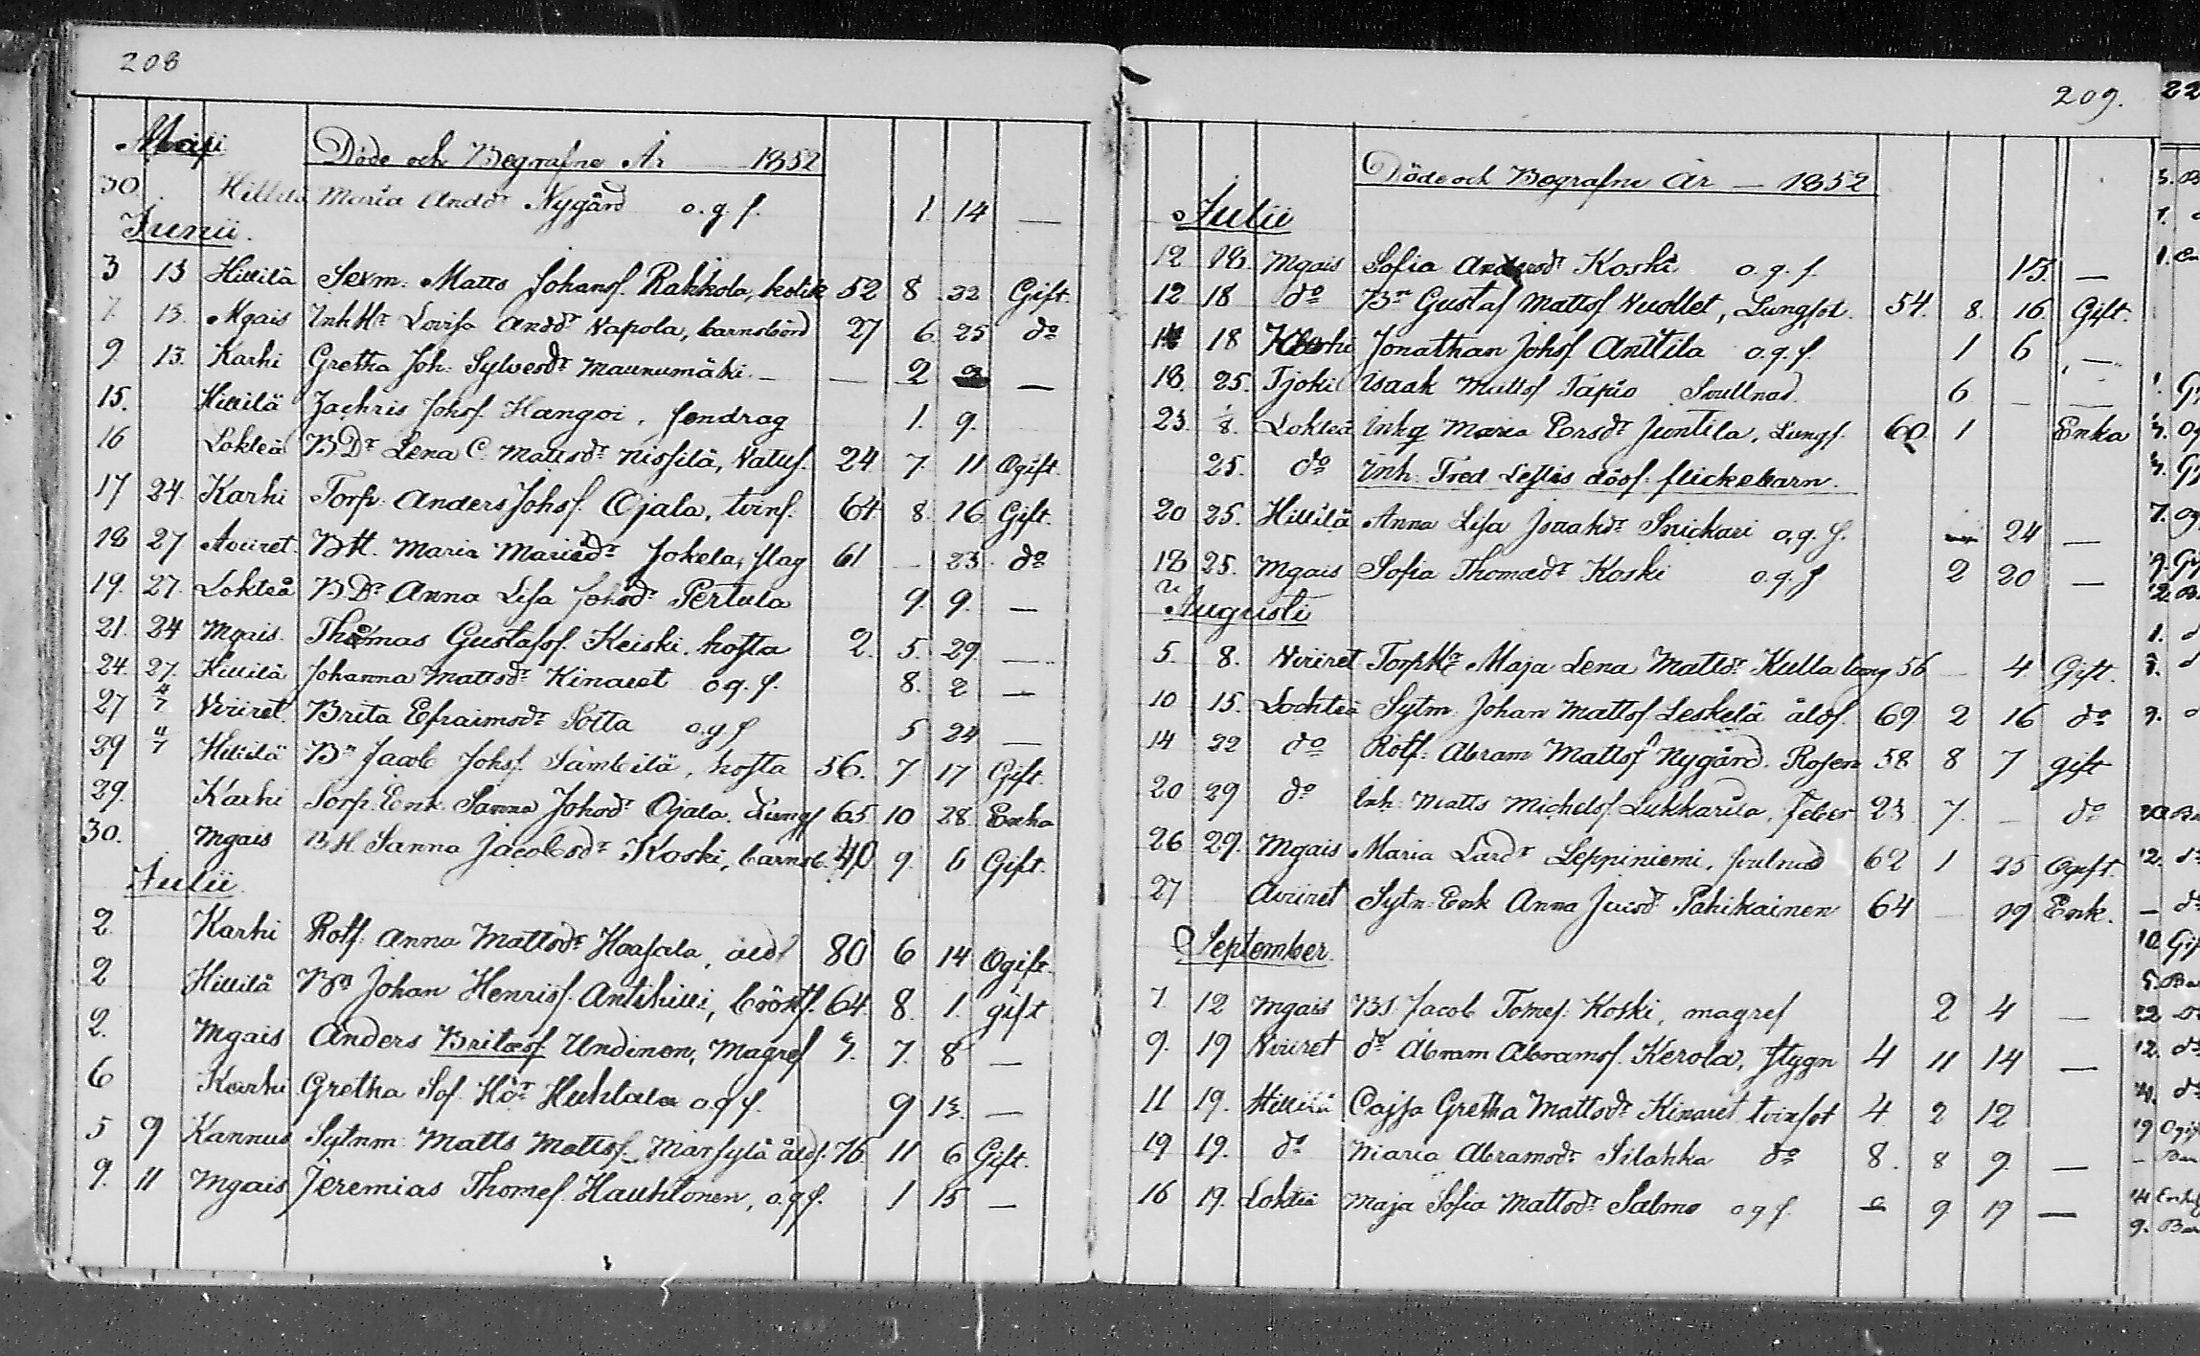 208
Maji
Döde och Begrafne År 1852
30. Hillilä Maria Andd:r Nygård o.g.s. 1. 14 —
Junii.
3 13 Hillilä Sexm: Matts Johans. Rahkola, kolik 52 8 22 Gift.
7. 13. Mgais InhH:r Lovisa Andd:r Napola, barnsbörd 27 6. 25 d:o
9 13. Karhi Gretha Joh: Sylvesd:r Maunumäki — — 2 —
15. Hillilä Zachris Johs. Hangoi, sendrag 1. 9.
16 Lokteå BD:r Lena C. Mattsd:r Nissilä, Vatus. 24 7. 11 Ogift.
17 24. Karhi Torp: Anders Johs. Ojala, tvins. 64 8. 16 Gift.
18 27 Aviiret. BH. Maria Mariæd:r Jokela, slag 61 — 23. d:o
19. 27. Lokteå BD:r Anna Lisa Johsd:r Pertula 9. 9. —
21. 24 Mgais. Thomas Gustafss. Keiski. hosta 2. 5. 29. —
24. 27. Hillilä Johanna Mattsd:r Kinaret o.g.s. 8. 2 —
27 4/7 Yviiret. Brita Efraimsd:r Sotta o.g.s 5 24 —
29 4/7 Hillilä B:n Jacob Johs. Sämbilä, hosta 56. 7 17 Gift.
29. Karhi Torp. Enk. Sanna Johsd:r Ojala. Lungs 65 10 28. Enka
30. Mgais BH. Sanna Jacobsd:r Koski, barnsb. 40 9. 6 Gift.
Julii.
2. Karhi Rotf: Anna Mattsd:r Haasala, åld. 80 6 14 Ogift.
2 Hillilä B:n Johan Henriss. Antihilli, bröstf. 64. 8. 1. gift
2. Mgais Anders Britæs. Undinen, Magref 7. 8 —
6 Karhi Gretha Sof. Hd:r Huhtala o.g.s. 9 13. —
5 9 Kannus Sytnm: Matts Mattss. Märsylä åld. 76. 11 6 Gift.
9. 11 Mgais Jeremias Thomes. Hauhtonen, o.g.s. 1 15 —
209.
Döde och Begrafne År — 1852
Julii
12 18. Mgais Sofia Andersd:r Koski o.g.s. 15. —
12 18 d:o B:n Gustaf Mattss. Vuollet, Lungsot. 54. 8. 16 Gift.
18 Karhi Jonathan Johss. Anttila o.g.s. 1 6 —
18. 25. Tjokil Isaak Mattss Tapio Svullnad 6 — —
23. 1/8. Lokteå Inhq Maria Ersd:r Juntila, Lungs. 60 1 Enka
25. d:o Inh: Fred Leflés dösf: flickebarn.
20 25. Hillilä Anna Lisa Isaaksd:r Snickari o.g.s. 24 —
18 25. Mgais Sofia Thomæd:r Koski o.g.s 2 20 —
Augusti
5. 8. Yviiret TorpH:r Maja Lena Mattsd:r Kulla lung 56 — 4. Gift.
10 15. Lochteå Sytm. Johan Mattss. Leskelä ålds. 69 2 16 d:o
14 22 d:o Rotf: Abram Mattss Nygård. Rosen 58 8 7 gift
20 29 d:o Inh: Matts Michelss. Lukkarila, feber 23 7. — d:o
26 29. Mgais Maria Larsd:r Leppiniemi, svulnad 62 1 25 Ogift.
27 Aviiret Sytn: Enk Anna Juisd:r Pahikainen 64 — 19 Enk.
September.
7. 12 Mgais BS. Jacob Tomes: Koski, magref 2 4 —
9. 19 Yviiret d:o Abram Abramss. Kerola, stygn 4 11 14 —
11 19. Hillilä Cajsa Gretha Mattsd:r Kinaret tvinsot 4. 2 12
19 19. d:o Maria Abramsd:r Silahka d:o 8. 8 9 —
16 19. Lokteå Maja Sofia Mattsd:r Salmo o.g.s. 9 19 —